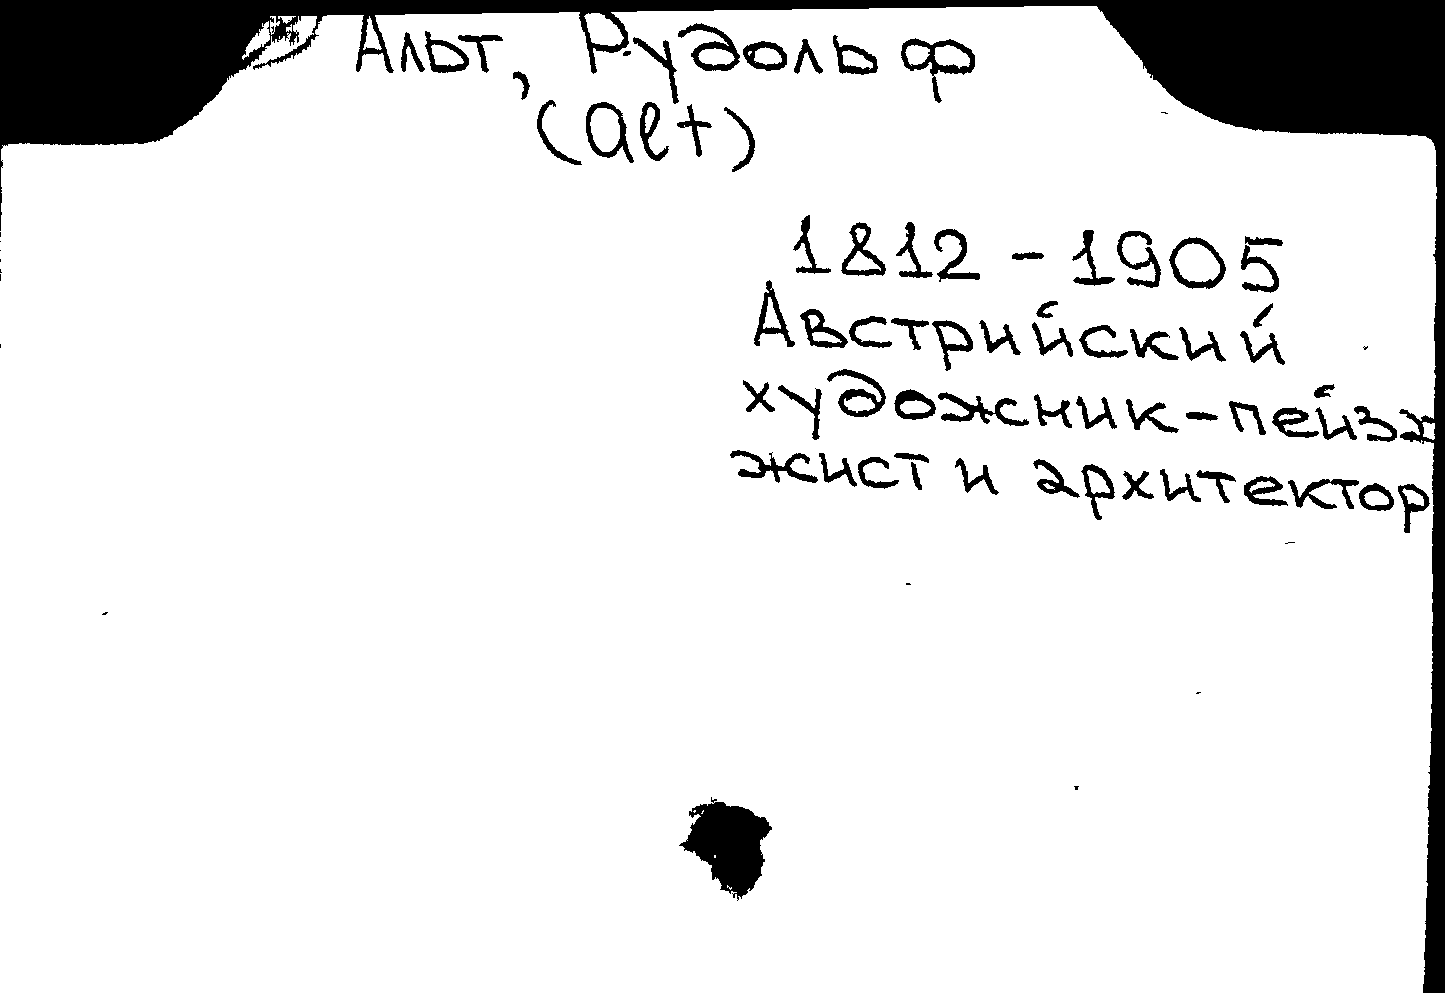 Альт, Рудольф
(Alt)
1812 - 1905
Австрийский
художник-пейза
жист и архитектор